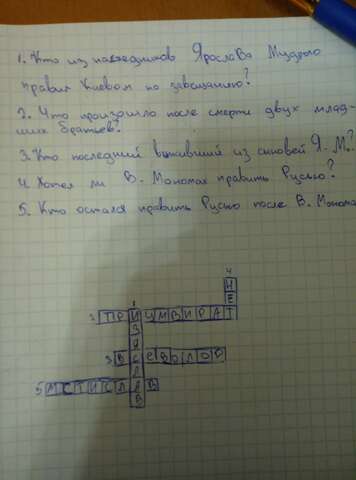 1. Кто из наследников Ярослава Мудрого
правил Киевом по завещанию?
2. Что произошло после смерти двух млад-
ших братьев?
3. Кто последний выживший из сыновей Я. М.?
4 Хотел ли В. Мономах править Русью?
5. Кто остался править Русью после В. Моном
4
Н
Е
1
2 ТРИУМВИРАТ
З
Я
3 ВСЕВОЛОД
Л
5 МСТИСЛАВ
В